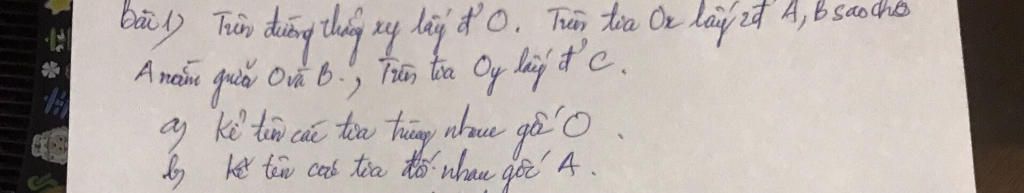 Bài 1) Trên đường thẳng xy lấy đ' O. Trên tia Ox lấy 2đ' A, B sao cho
A nằm giữa O và B., Trên tia Oy lấy đ' C.
a) Kể tên các tia trùng nhau gốc O.
b) Kể tên các tia đối nhau gốc A.